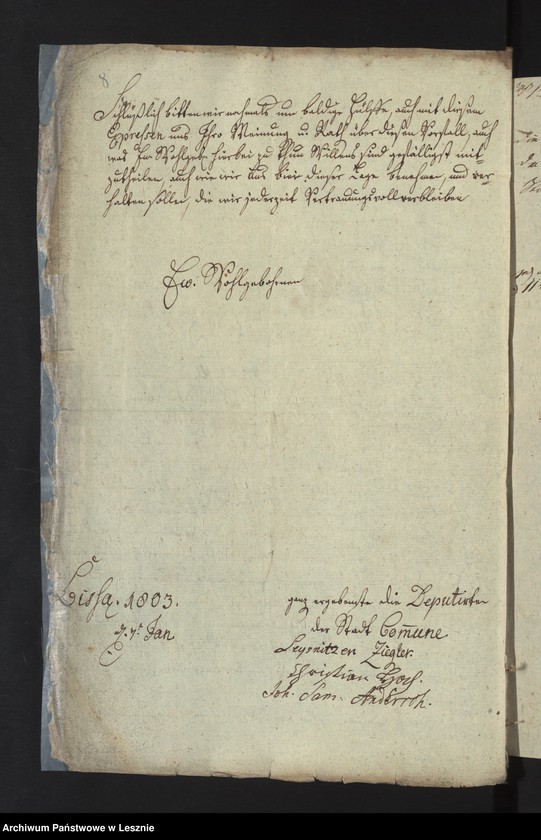 8
Schlüßlich bitten wir nochmals um baldige Hülfe, auch mit diesem
Expressen uns Ihro Meinung u Rath über diesen Vorfall, auch
was Ew Wohlgeb hierbei zu thun Willens sind gefälligst mit-
zutheilen, auch wie wir uns bei dieser Lage benehmen, und ver-
halten sollen, die wir jederzeit Vertrauungsvoll verbleiben
Ew. Wohlgebohrnen
Lissa. 1803.
d. 7t Jan
ganz ergebenste die Deputirten
der Stadt Com̄une
Ziegler.
Christian
Joh. Sam.
Archiwum Państwowe w Lesznie